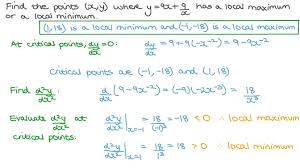 Find the points (x,y) where y=9x+9/x has a local maximum
or a local minimum.
(1,18) is a local minimum and (-1,-18) is a local maximum
At critical points, dy/dx=0: dy/dx = 9+9(-x⁻²) = 9-9x⁻²
Critical points are (-1,-18) and (1,18)
Find d²y/dx²: d/dx(9-9x⁻²) = (-9)(-2x⁻³) = 18/x³
Evaluate d²y/dx² at d²y/dx²|x=-1 = 18/(-1)³ = -18 < 0 ∴ local maximum
critical points: d²y/dx²|x=1 = 18/1³ = 18 > 0 ∴ local minimum